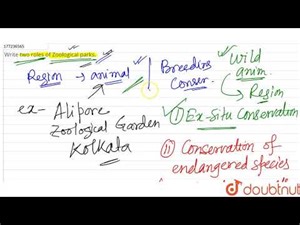 177236565
Write two roles of Zoological parks.
Region → animal
Breeding
Conser.
Wild
anim.
Region
ex- Alipore
Zoological Garden
Kolkata
① Ex-Situ Conservation
② Conservation of
endangered species
doubtnut